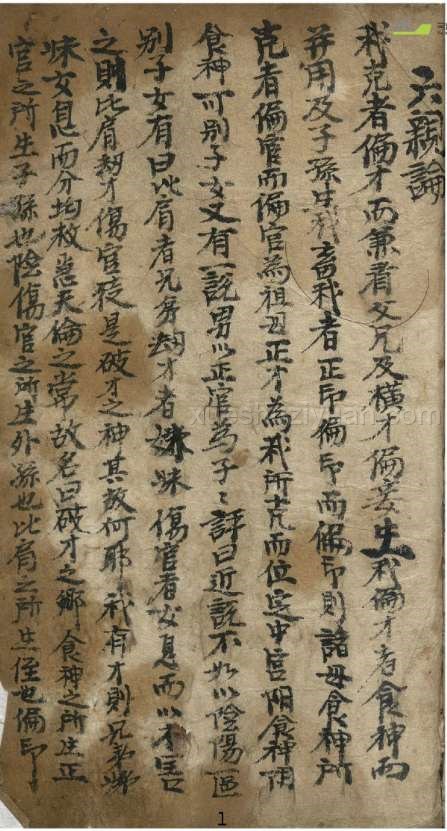 六親論
我克者偏才而兼看父兄及橫才偏妾生我偏才者食神而
并用及子孫生我畜我者正印偏印而偏印則諸母食神所
克者偏官而偏官為祖母正才為我所克而位定中宮陽食神陰
食神可別子女又有一說男以正官為子〻評曰近說不以陰傷區
别子女有曰比肩者兄弟刼才者妹妹傷官者女息而以才言
之則比肩刼才傷官徒是破才之神其故何耶我有才則兄弟
妹女息而分均救天倫之常故名曰破才之鄉食神之所生正
官之所生子孫也陰傷官之所生外孫也比肩之所生侄也偏印
1